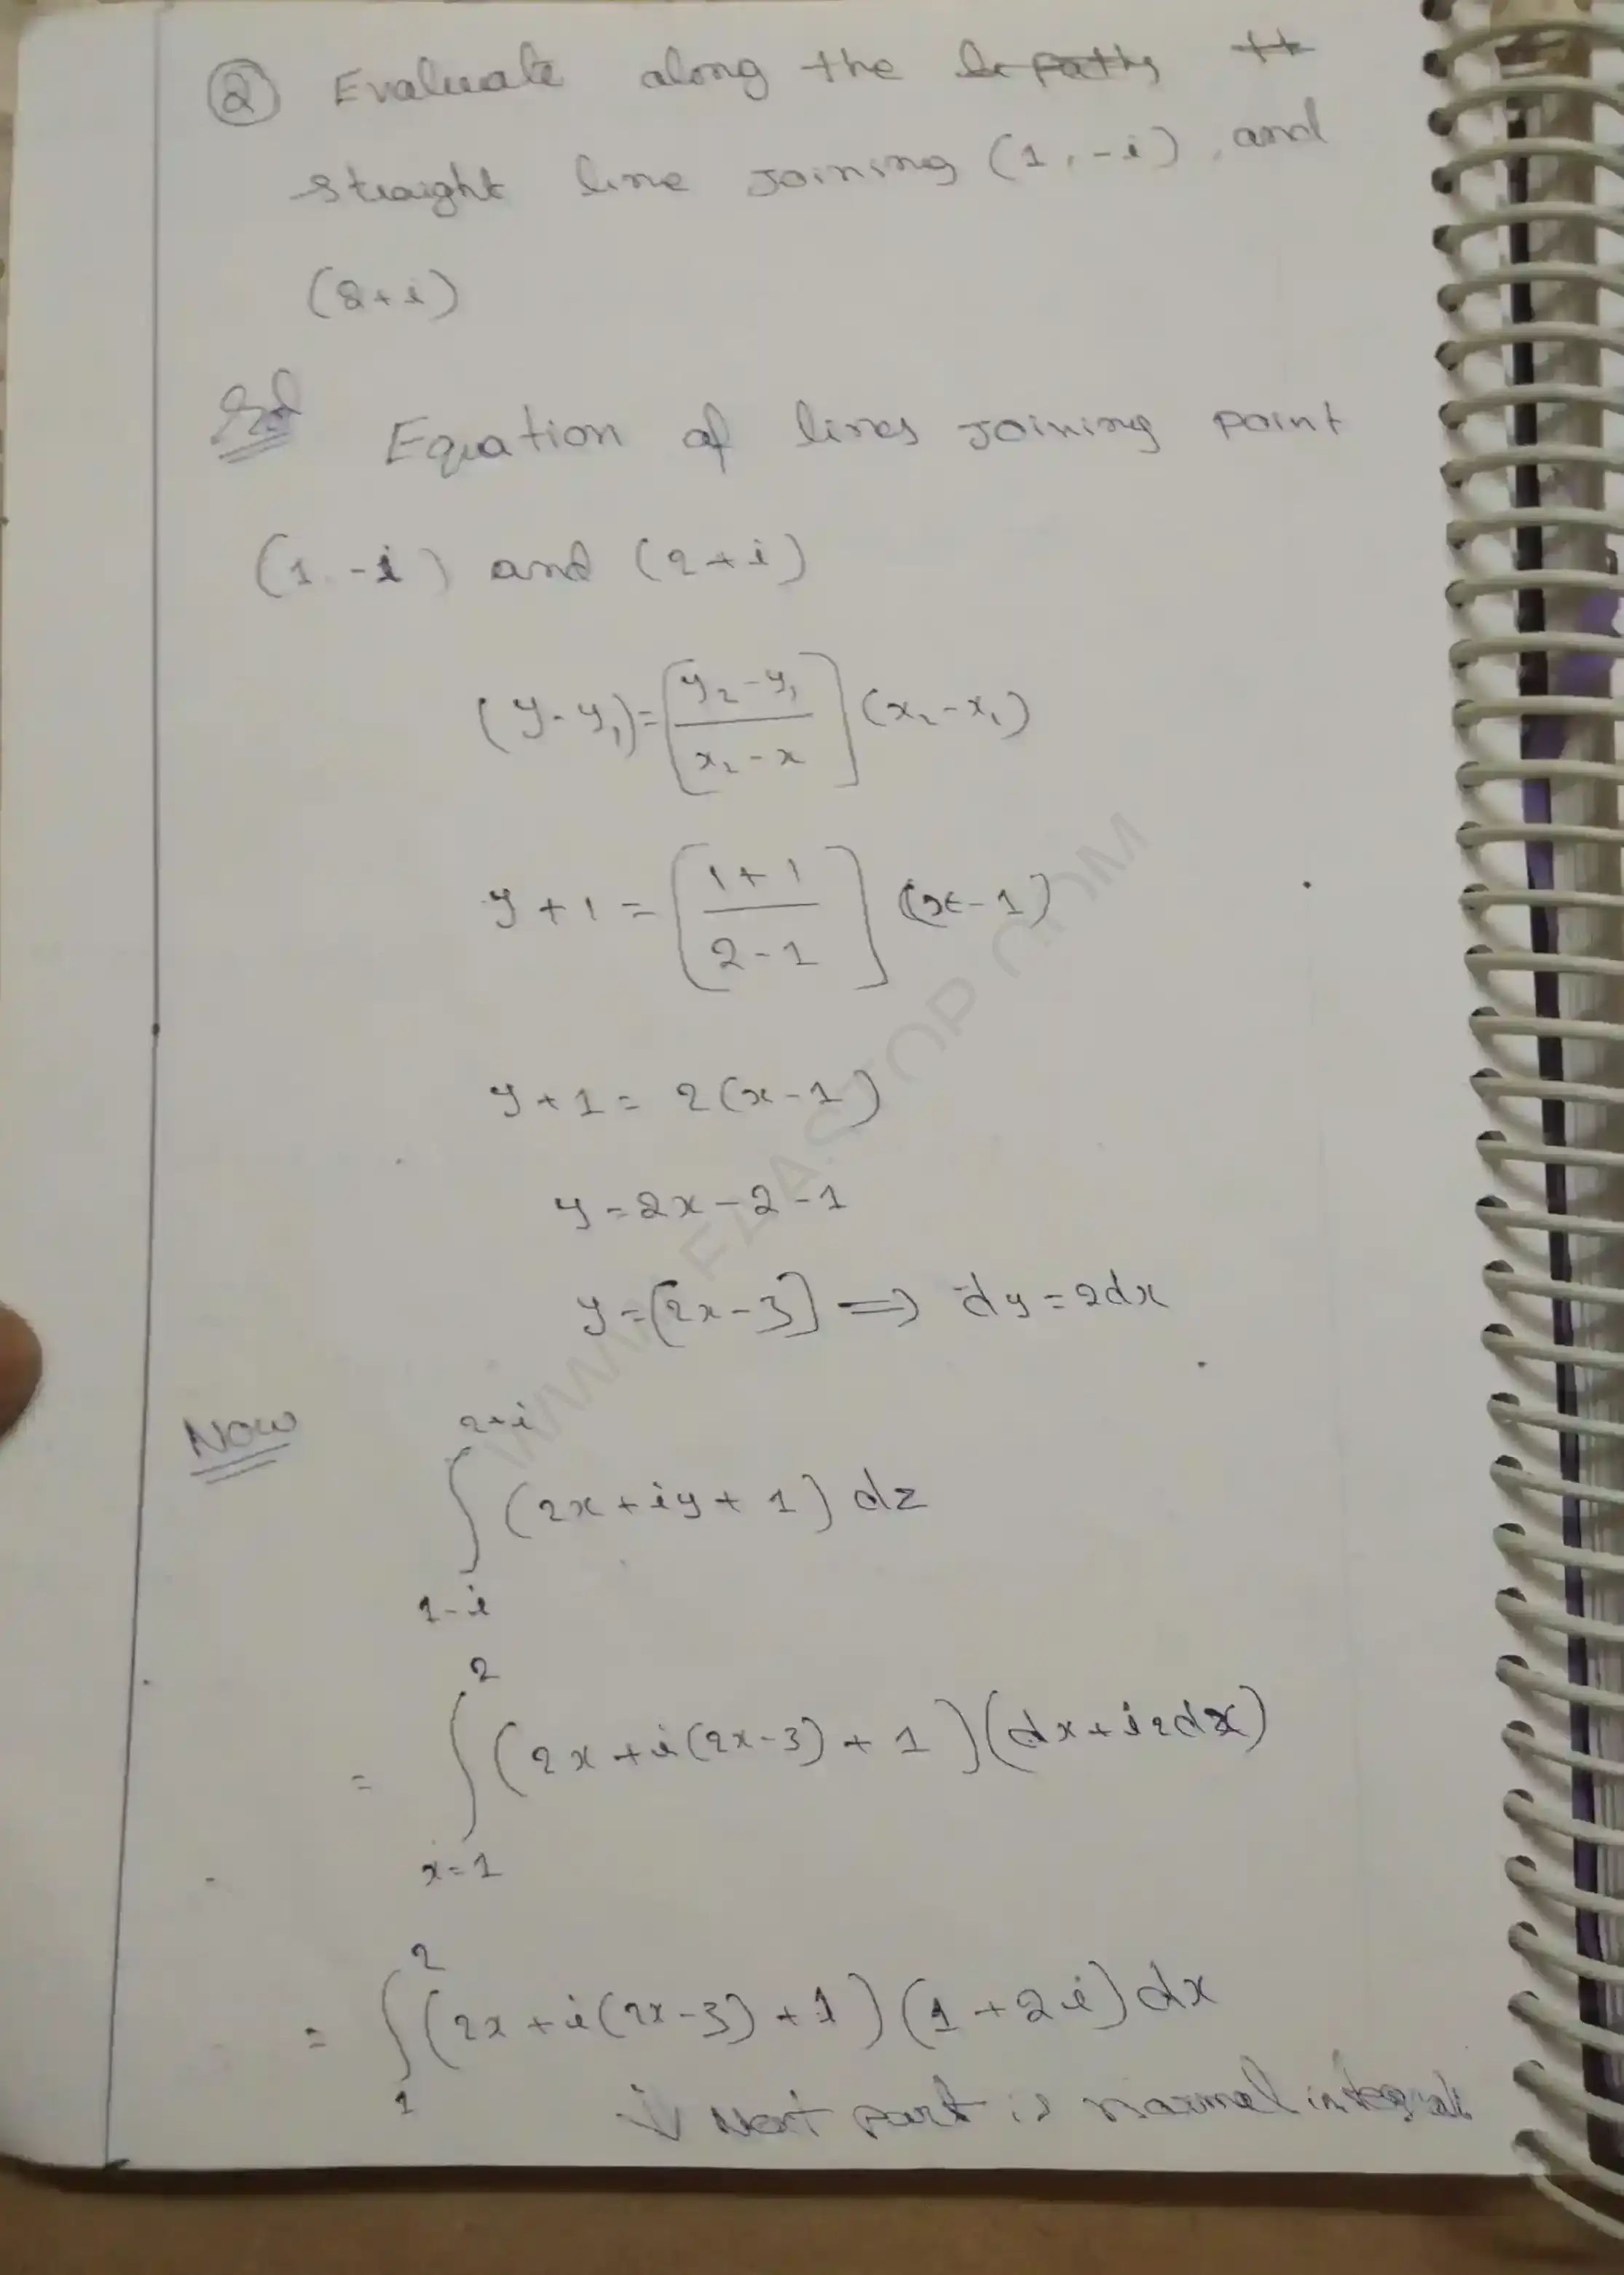 ② Evaluate along the
straight line Joining (1, -i), and
(2+i)
Sol
Equation of lines Joining point
(1, -i) and (2+i)
(y-y₁)=[y₂-y₁/x₂-x](x₂-x₁)
y+1=[1+1/2-1](x-1)
y+1=2(x-1)
y=2x-2-1
y=[2x-3] ⟹ dy=2dx
Now
∫_{1-i}^{2+i} (2x+iy+1) dz
= ∫_{x=1}^{2} (2x+i(2x-3)+1)(dx+i2dx)
= ∫_{1}^{2} (2x+i(2x-3)+1)(1+2i)dx
⇓ Next part is normal integral